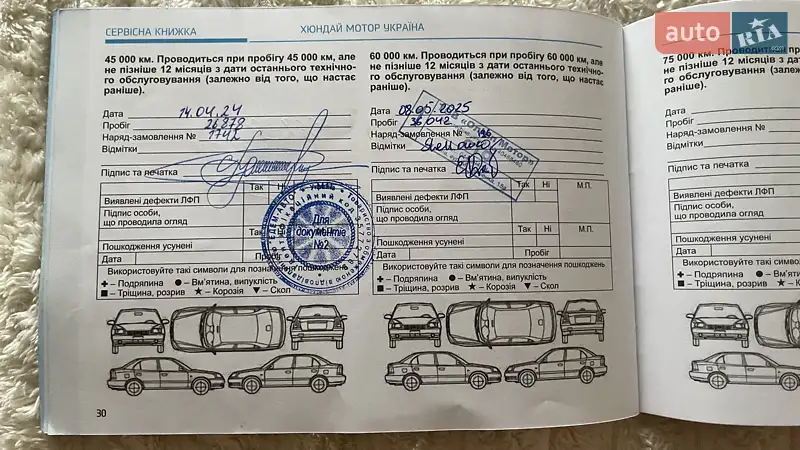 СЕРВІСНА КНИЖКА
ХЮНДАЙ МОТОР УКРАЇНА
auto RIA
45 000 км. Проводиться при пробігу 45 000 км, але
не пізніше 12 місяців з дати останнього технічно-
го обслуговування (залежно від того, що настає
раніше).
Дата 14.04.24
Пробіг 26978
Наряд-замовлення № 1742
Відмітки
Підпис та печатка
Так Ні М.П.
Виявлені дефекти ЛФП
Підпис особи,
що проводила огляд
Так Ні
Пошкодження усунені
Дата Пробіг
Для
документів
№2
Використовуйте такі символи для позначення пошкоджень
Подряпина Вм'ятина, випуклість
Тріщина, розрив Корозія Скол
30
60 000 км. Проводиться при пробігу 60 000 км, але
не пізніше 12 місяців з дати останнього технічно-
го обслуговування (залежно від того, що настає
раніше).
Дата 08.05.2025
Пробіг 36042
Наряд-замовлення № 196
Відмітки
Підпис та печатка
Так Ні М.П.
Виявлені дефекти ЛФП
Підпис особи,
що проводила огляд
Так Ні М.П.
Пошкодження усунені
Дата Пробіг
Використовуйте такі символи для позначення пошкоджень
Подряпина Вм'ятина, випуклість
Тріщина, розрив Корозія Скол
75 000 км. Проводиться при
не пізніше 12 місяців з дати ос
го обслуговування (залежно
раніше).
Дата
Пробіг
Наряд-замовлення №
Відмітки
Підпис та печатка
Виявлені дефекти ЛФП
Підпис особи,
що проводила огляд
Пошкодження усунені
Дата
Використовуйте такі симво
Подряпина
Тріщина, розрив